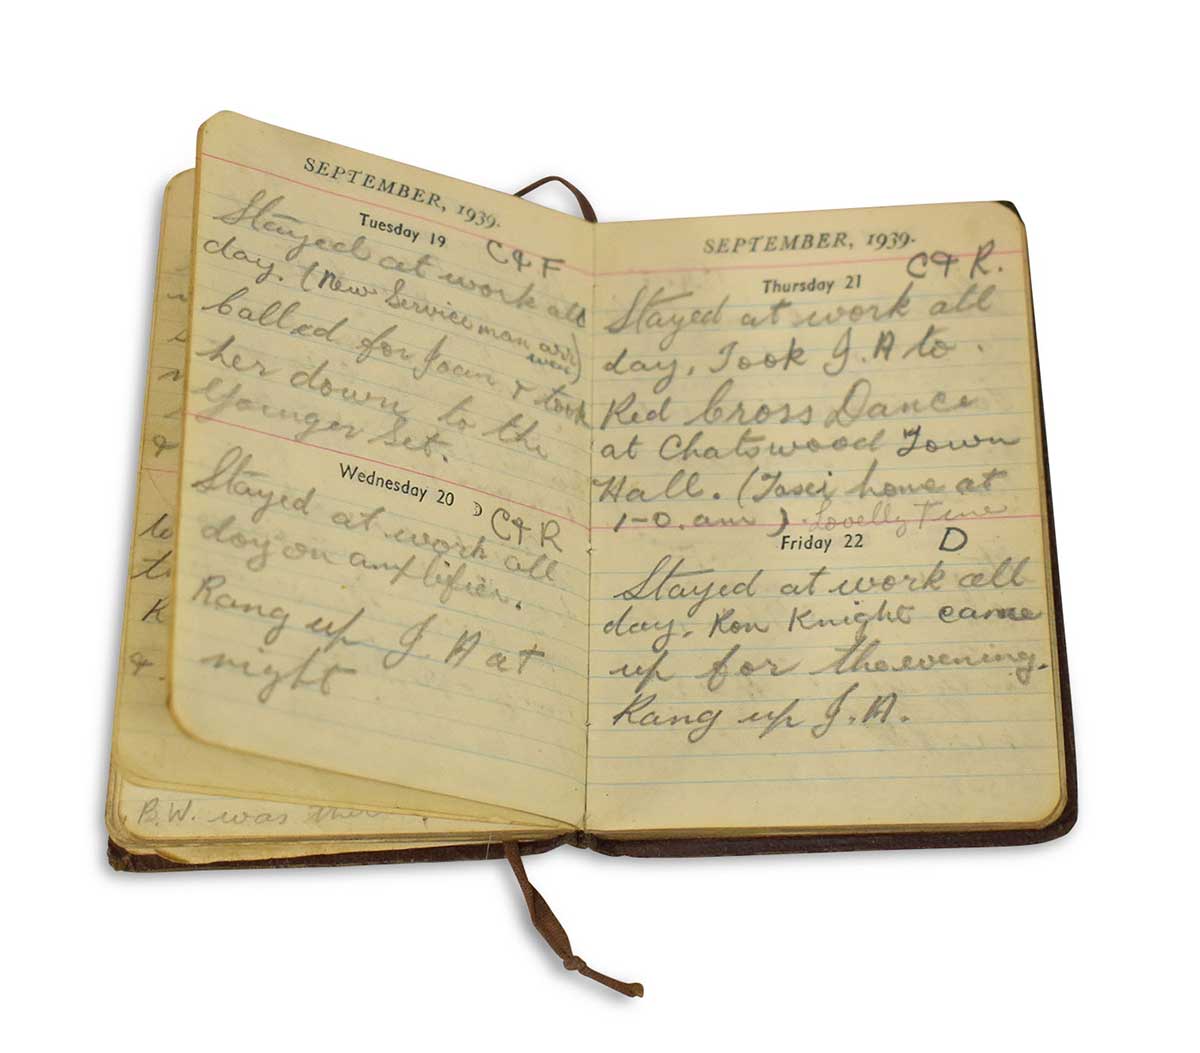 SEPTEMBER, 1939.
Tuesday 19
C & F
Stayed at work all
day. (New Service man arr
Called for Joan & took
her down to the
Younger Set.
Wednesday 20
D C & R
Stayed at work all
day on amplifier.
Rang up J. A at
night
B.W. was
SEPTEMBER, 1939.
Thursday 21
C & R.
Stayed at work all
day. Took J. A to
Red Cross Dance
at Chatswood Town
Hall. (Taxi home at
1-0. am) Lovelly Time
Friday 22
D
Stayed at work all
day. Ron Knight came
up for the evening.
Rang up J. A.